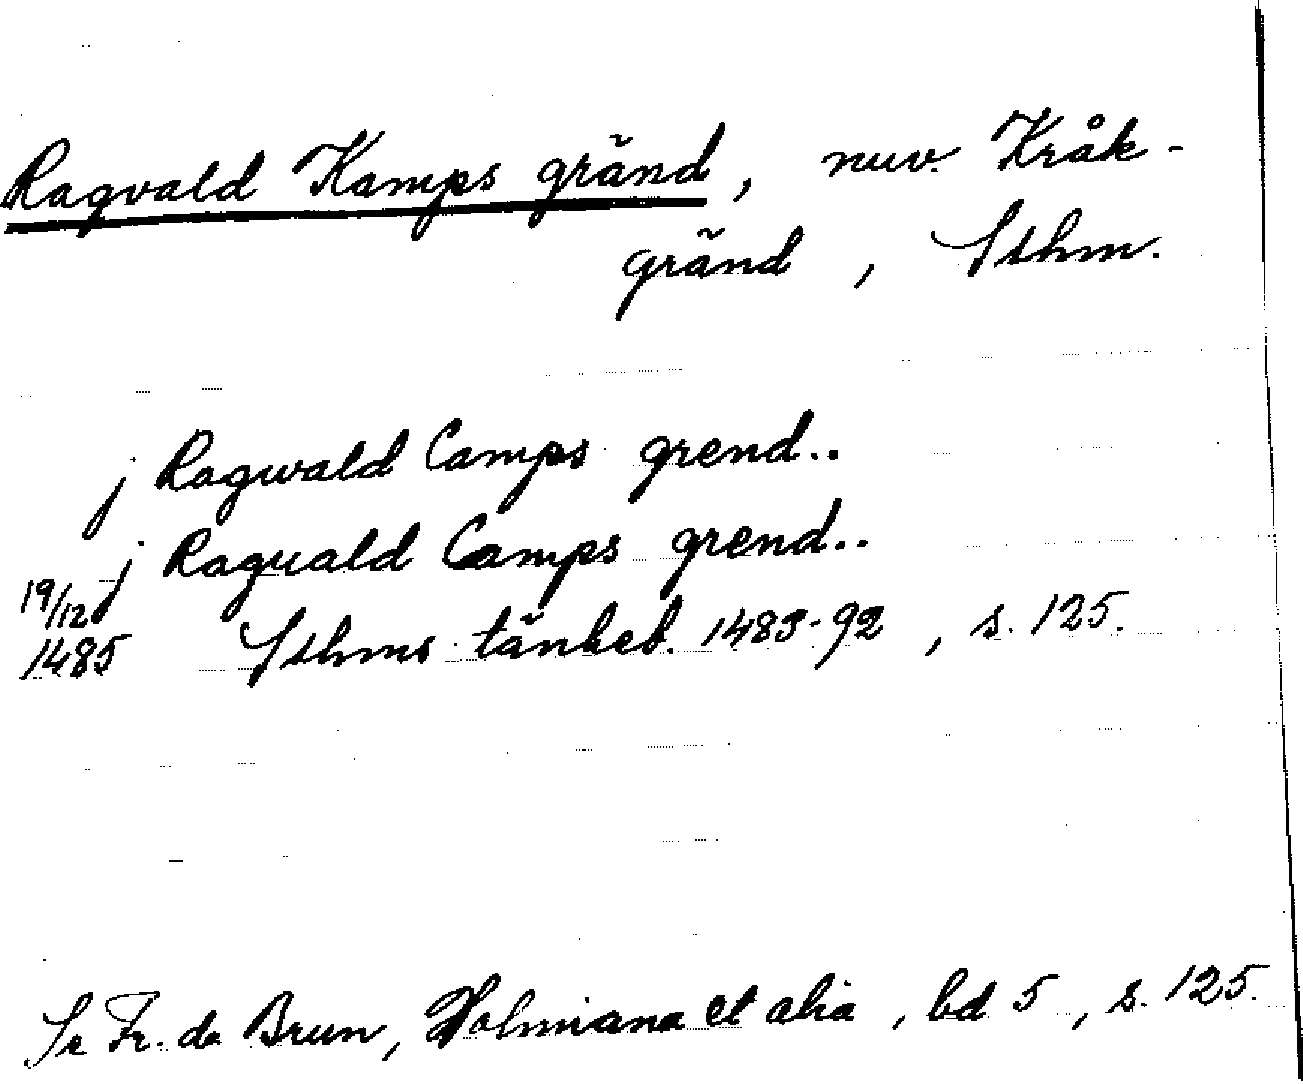 Ragvald Kamps gränd, nuv. Kråk-
gränd, Sthm.
j Ragwald Camps grend..
j Raguald Camps grend..
19/12
1485 Sthms tänkeb. 1483-92, s. 125.
Se Fr. de Brun, Holmiana et alia, bd 5, s. 125.